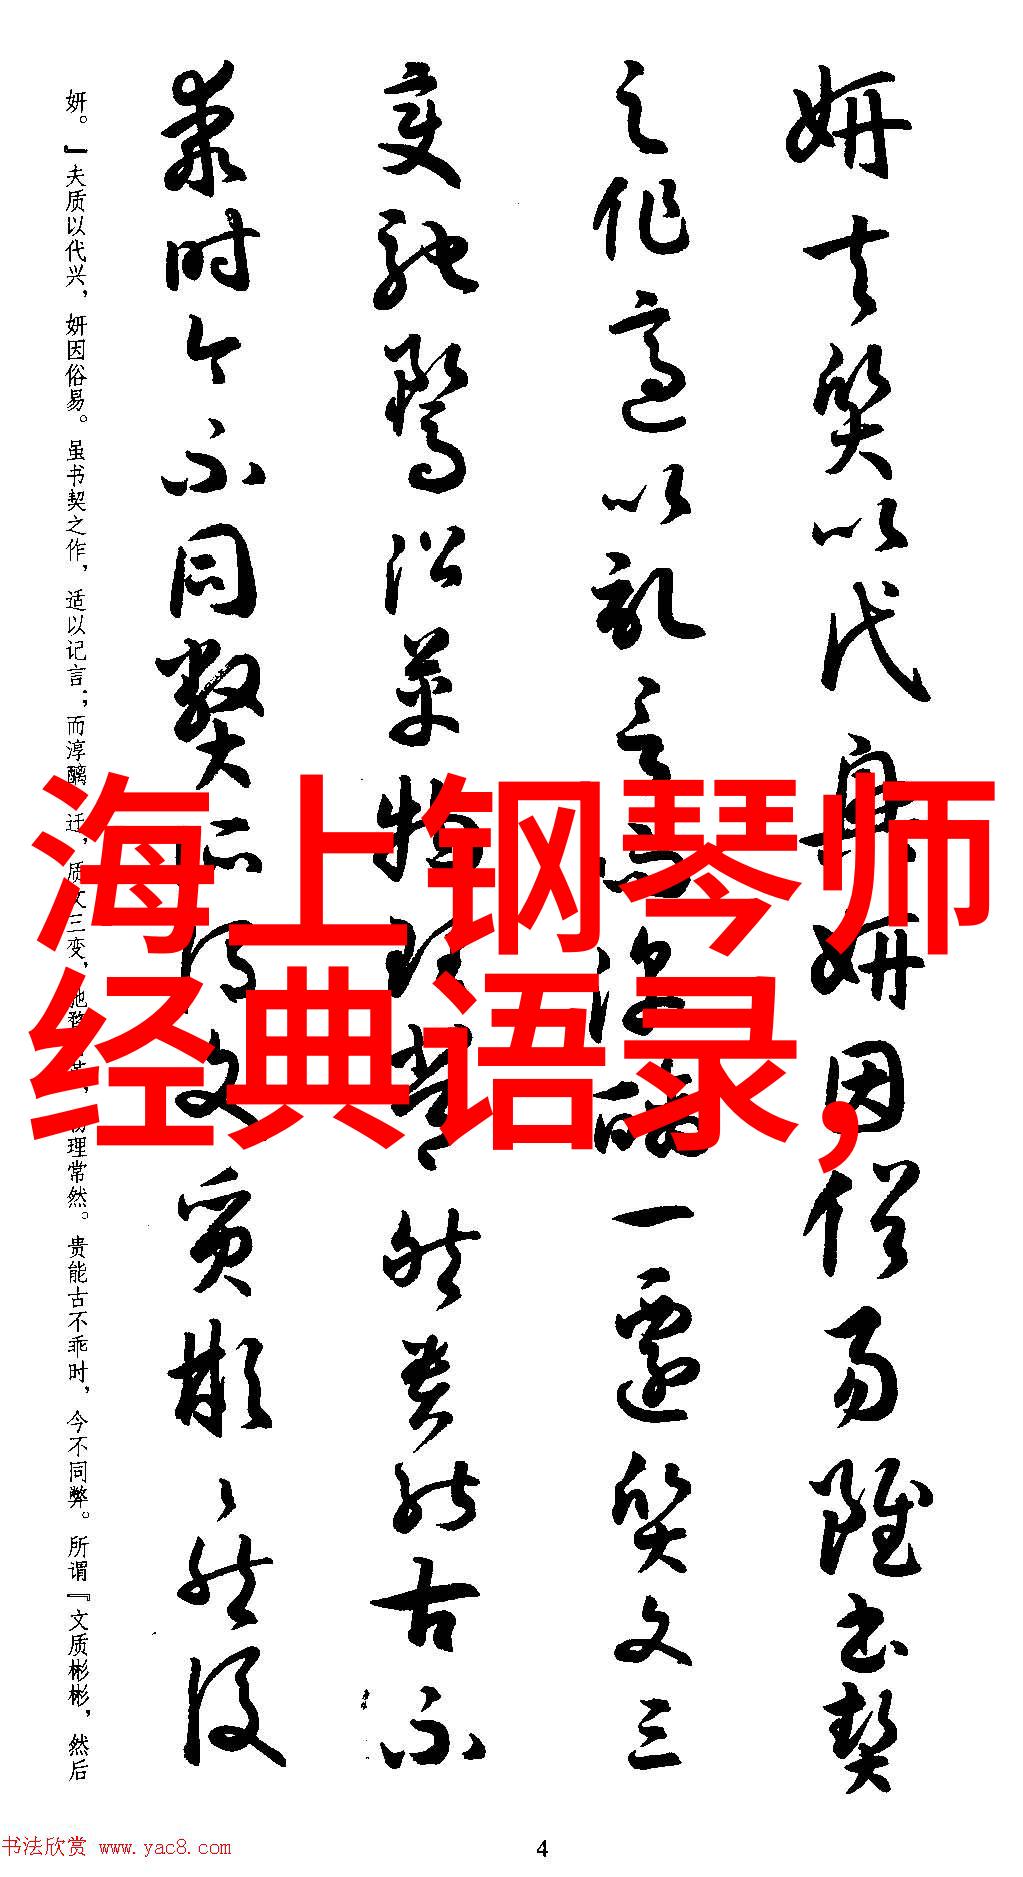 妍夫質以代興妍因俗易雖書契
之作適以記言淳醨一遷質文三
變馳騖沿革物理常然貴能古不
乖時今不同弊所謂文質彬〻然後
妍。』夫质以代兴，妍因俗易。虽书契之作，适以记言；而淳醨迁，质文三变，驰骛革，物理常然。贵能古不乖时，今不同弊。所谓『文质彬彬，然后
海上钢琴师
经典语录，
书法欣赏 www.yac8.com
4